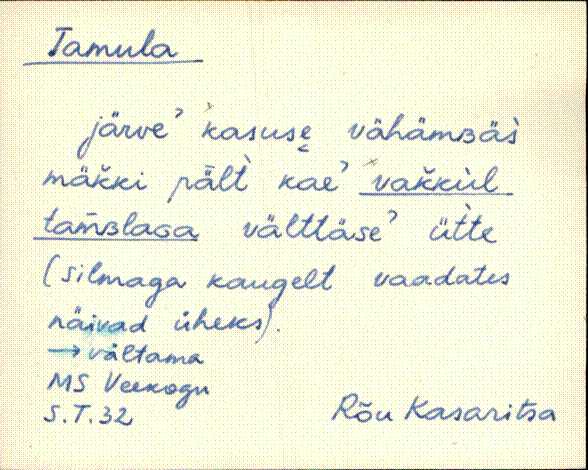 Tamula
järve' kasuse vähämʙäs̀
mäkki pält̀ kae' vakkùl
tam̄ʙlaɢa välttäse' üt̀te
(silmaga kaugelt vaadates
näivad üheks).
→ vältama
MS Veekogu
S.T. 32
Rõu Kasaritsa